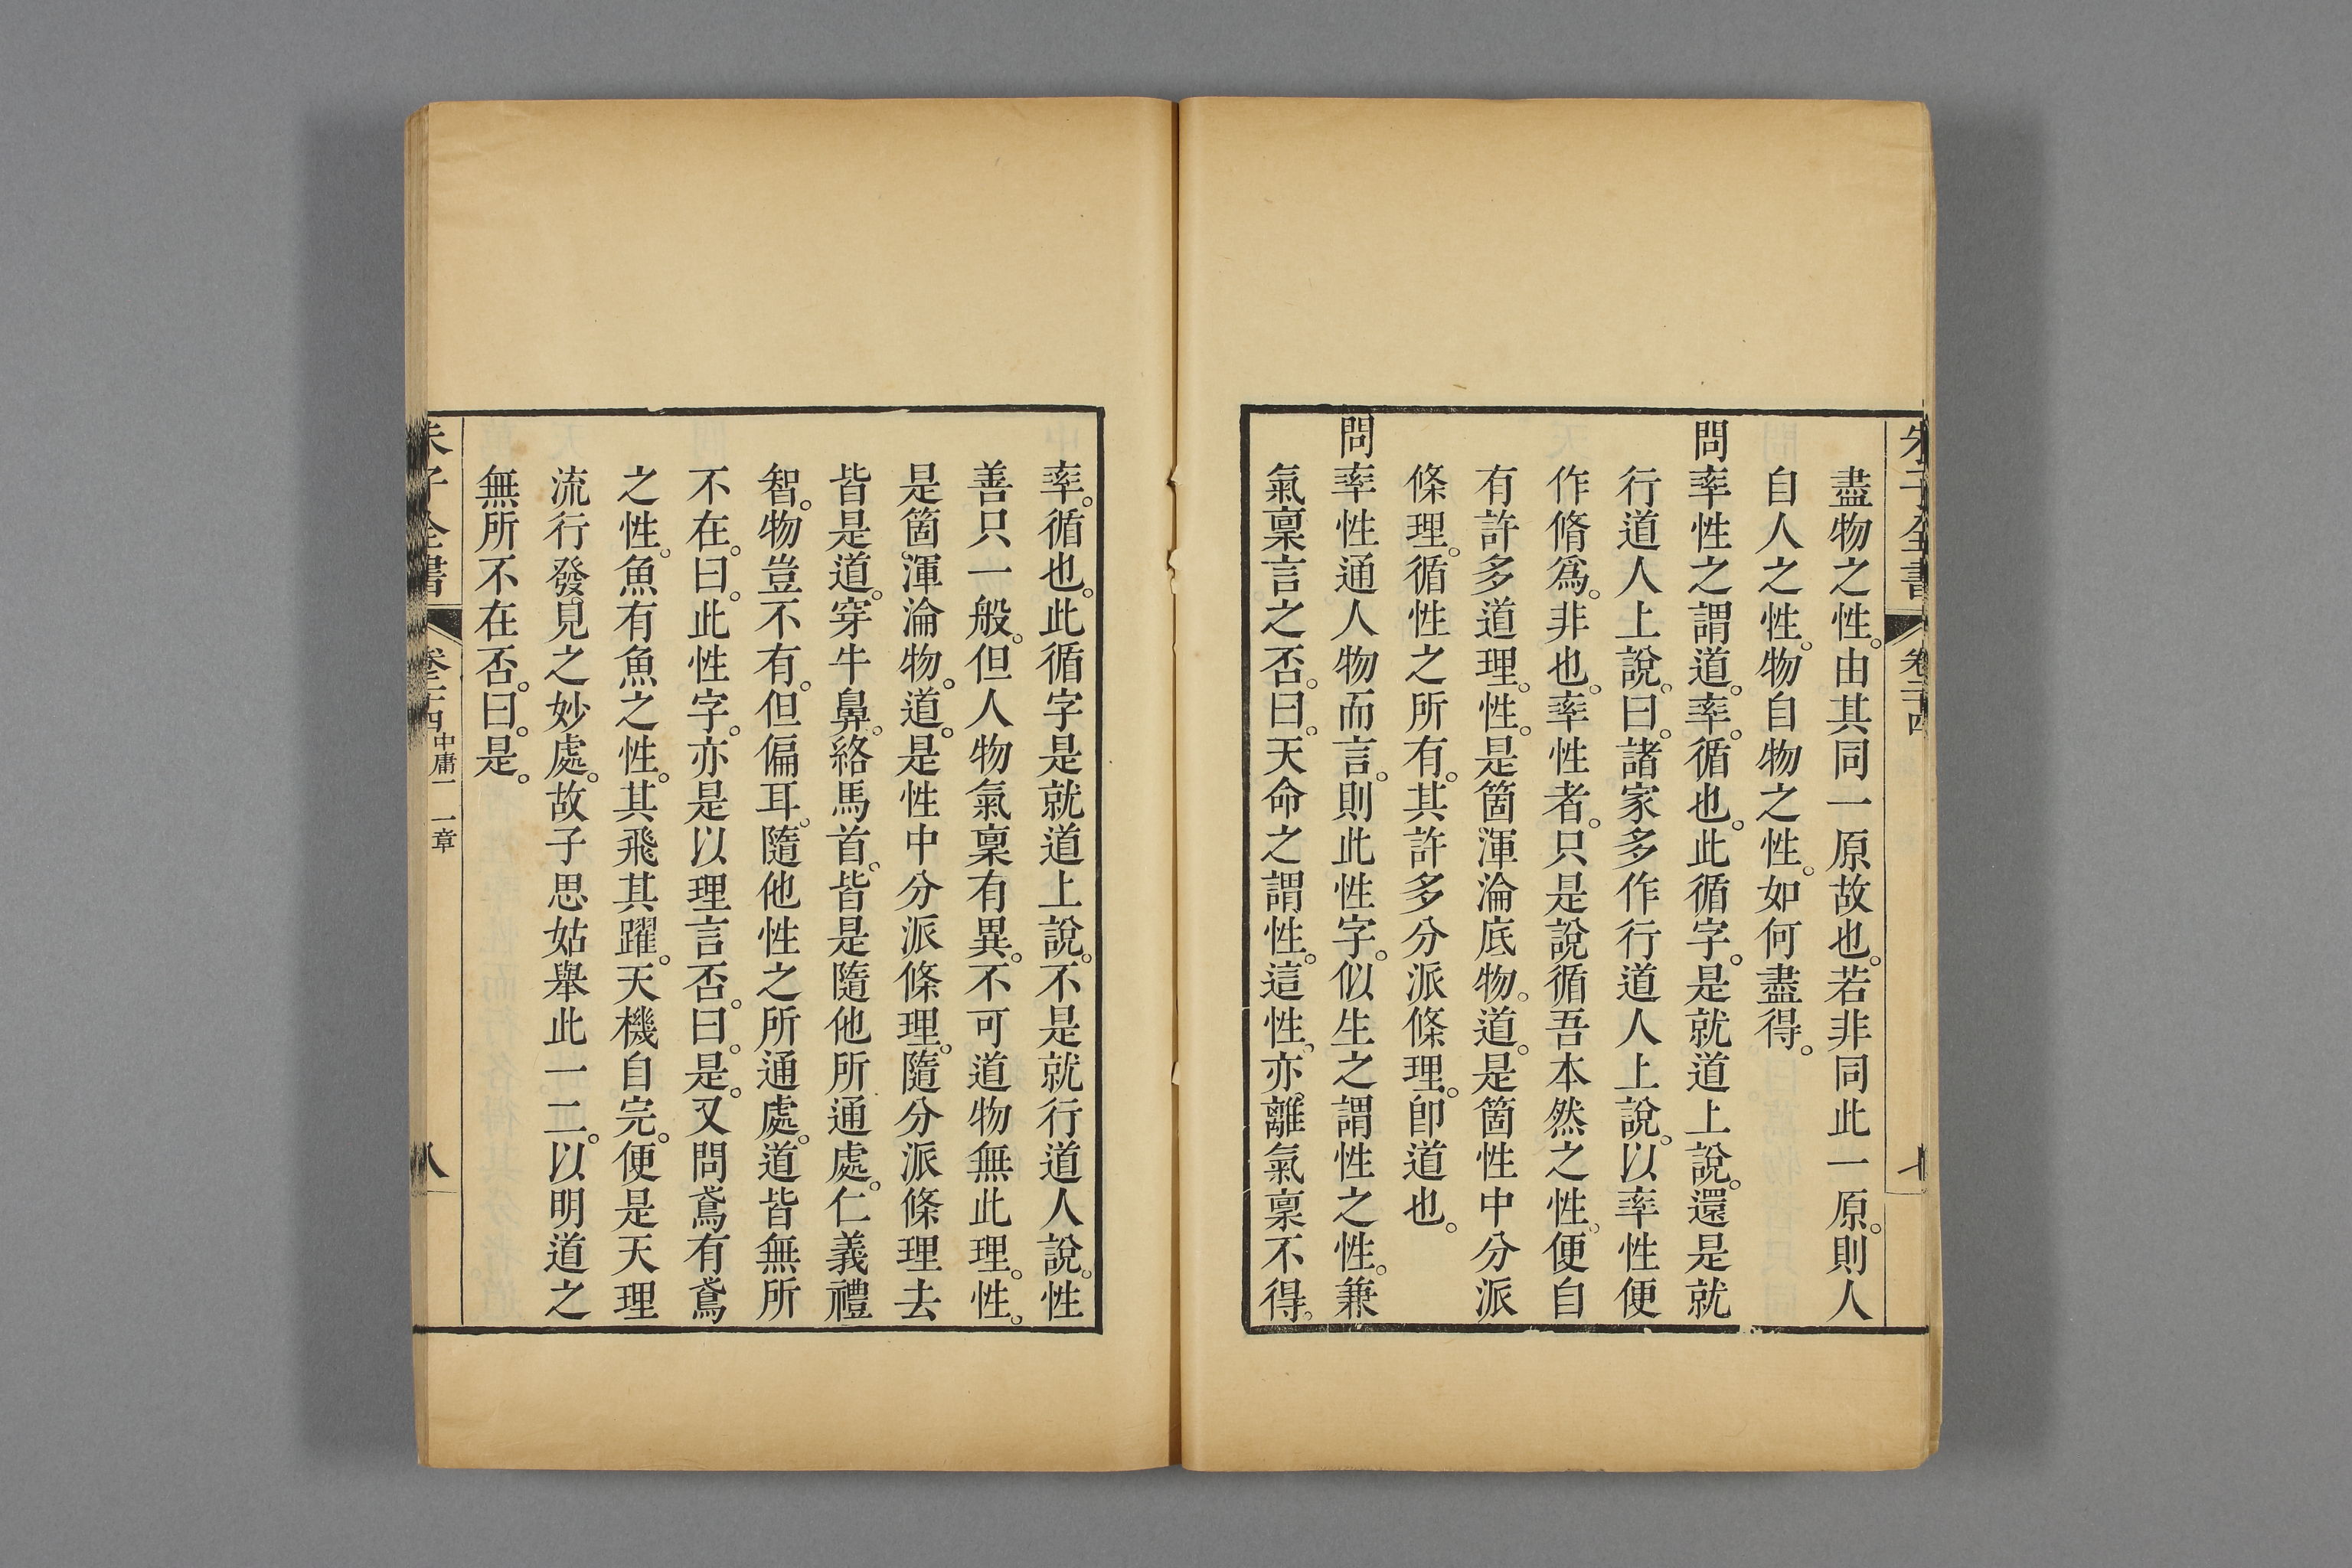 朱子全書 卷二十四 七
盡物之性。由其同一原故也。若非同此一原。則人
自人之性。物自物之性。如何盡得。
問率性之謂道。率。循也。此循字。是就道上說。還是就
行道人上說。曰。諸家多作行道人上說。以率性便
作脩爲。非也。率性者。只是說循吾本然之性。便自
有許多道理。性。是箇渾淪底物。道。是箇性中分派
條理。循性之所有。其許多分派條理。卽道也。
問率性通人物而言。則此性字。似生之謂性之性。兼
氣稟言之否。曰。天命之謂性。這性。亦離氣稟不得。
率。循也。此循字是就道上說。不是就行道人說。性
善只一般。但人物氣稟有異。不可道物無此理。性。
是箇渾淪物。道。是性中分派條理。隨分派條理去
皆是道。穿牛鼻。絡馬首。皆是隨他所通處。仁義禮
智。物豈不有。但偏耳。隨他性之所通處。道皆無所
不在。曰。此性字。亦是以理言否。曰。是。又問鳶有鳶
之性。魚有魚之性。其飛其躍。天機自完。便是天理
流行發見之妙處。故子思姑舉此一二。以明道之
無所不在否。曰。是。
朱子全書 卷二十四 中庸一 一章 八